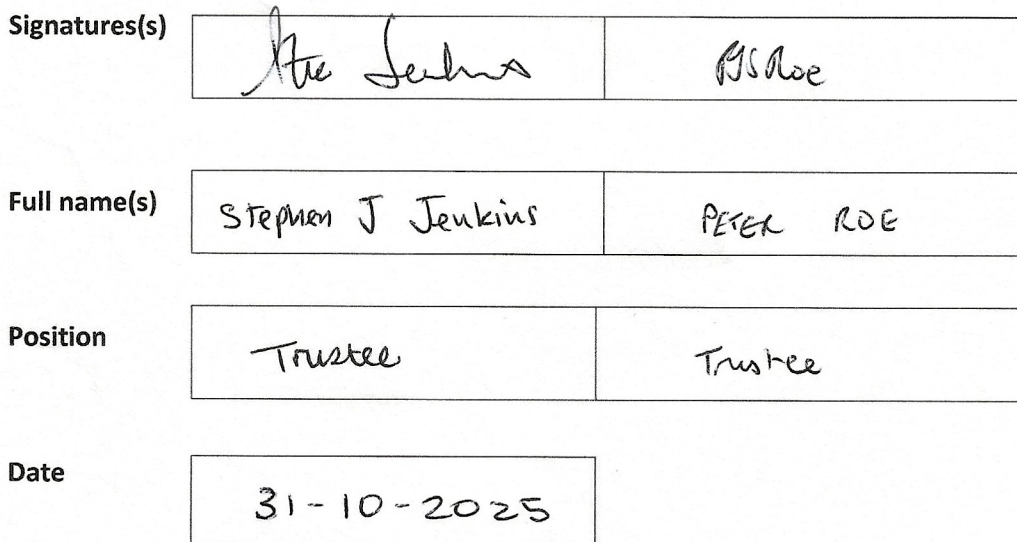 Signatures(s) Steve Jenkins PJS Roe
Full name(s) Stephen J Jenkins PETER ROE
Position Trustee Trustee
Date 31-10-2025